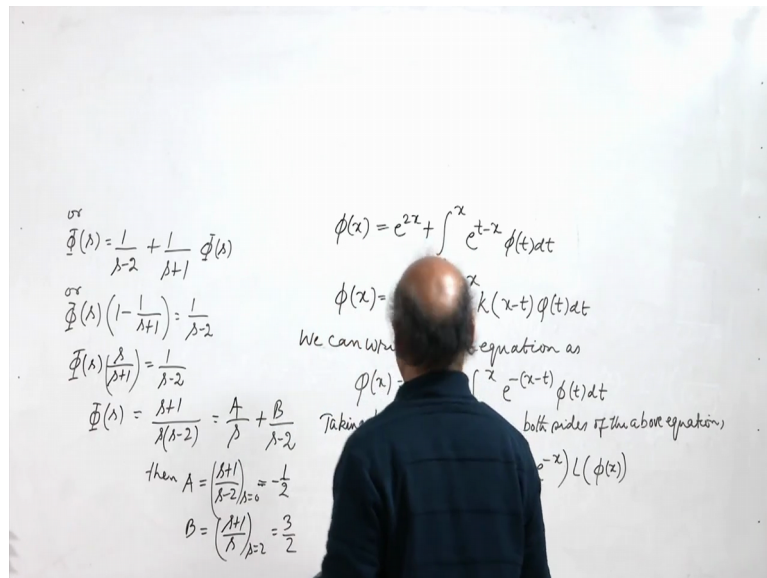 or
Φ(s) = 1/(s-2) + 1/(s+1) Φ(s)
or
Φ(s)(1 - 1/(s+1)) = 1/(s-2)
Φ(s)(s/(s+1)) = 1/(s-2)
Φ(s) = (s+1)/(s(s-2)) = A/s + B/(s-2)
then A = ((s+1)/(s-2))_{s=0} = -1/2
B = ((s+1)/s)_{s=2} = 3/2
ϕ(x) = e^{2x} + ∫^x e^{t-x} ϕ(t)dt
ϕ(x) = x k(x-t)φ(t)dt
We can equation as
φ(x) ∫^x e^{-(x-t)} ϕ(t)dt
Taking both sides of the above equation,
e^{-x}) L(ϕ(x))